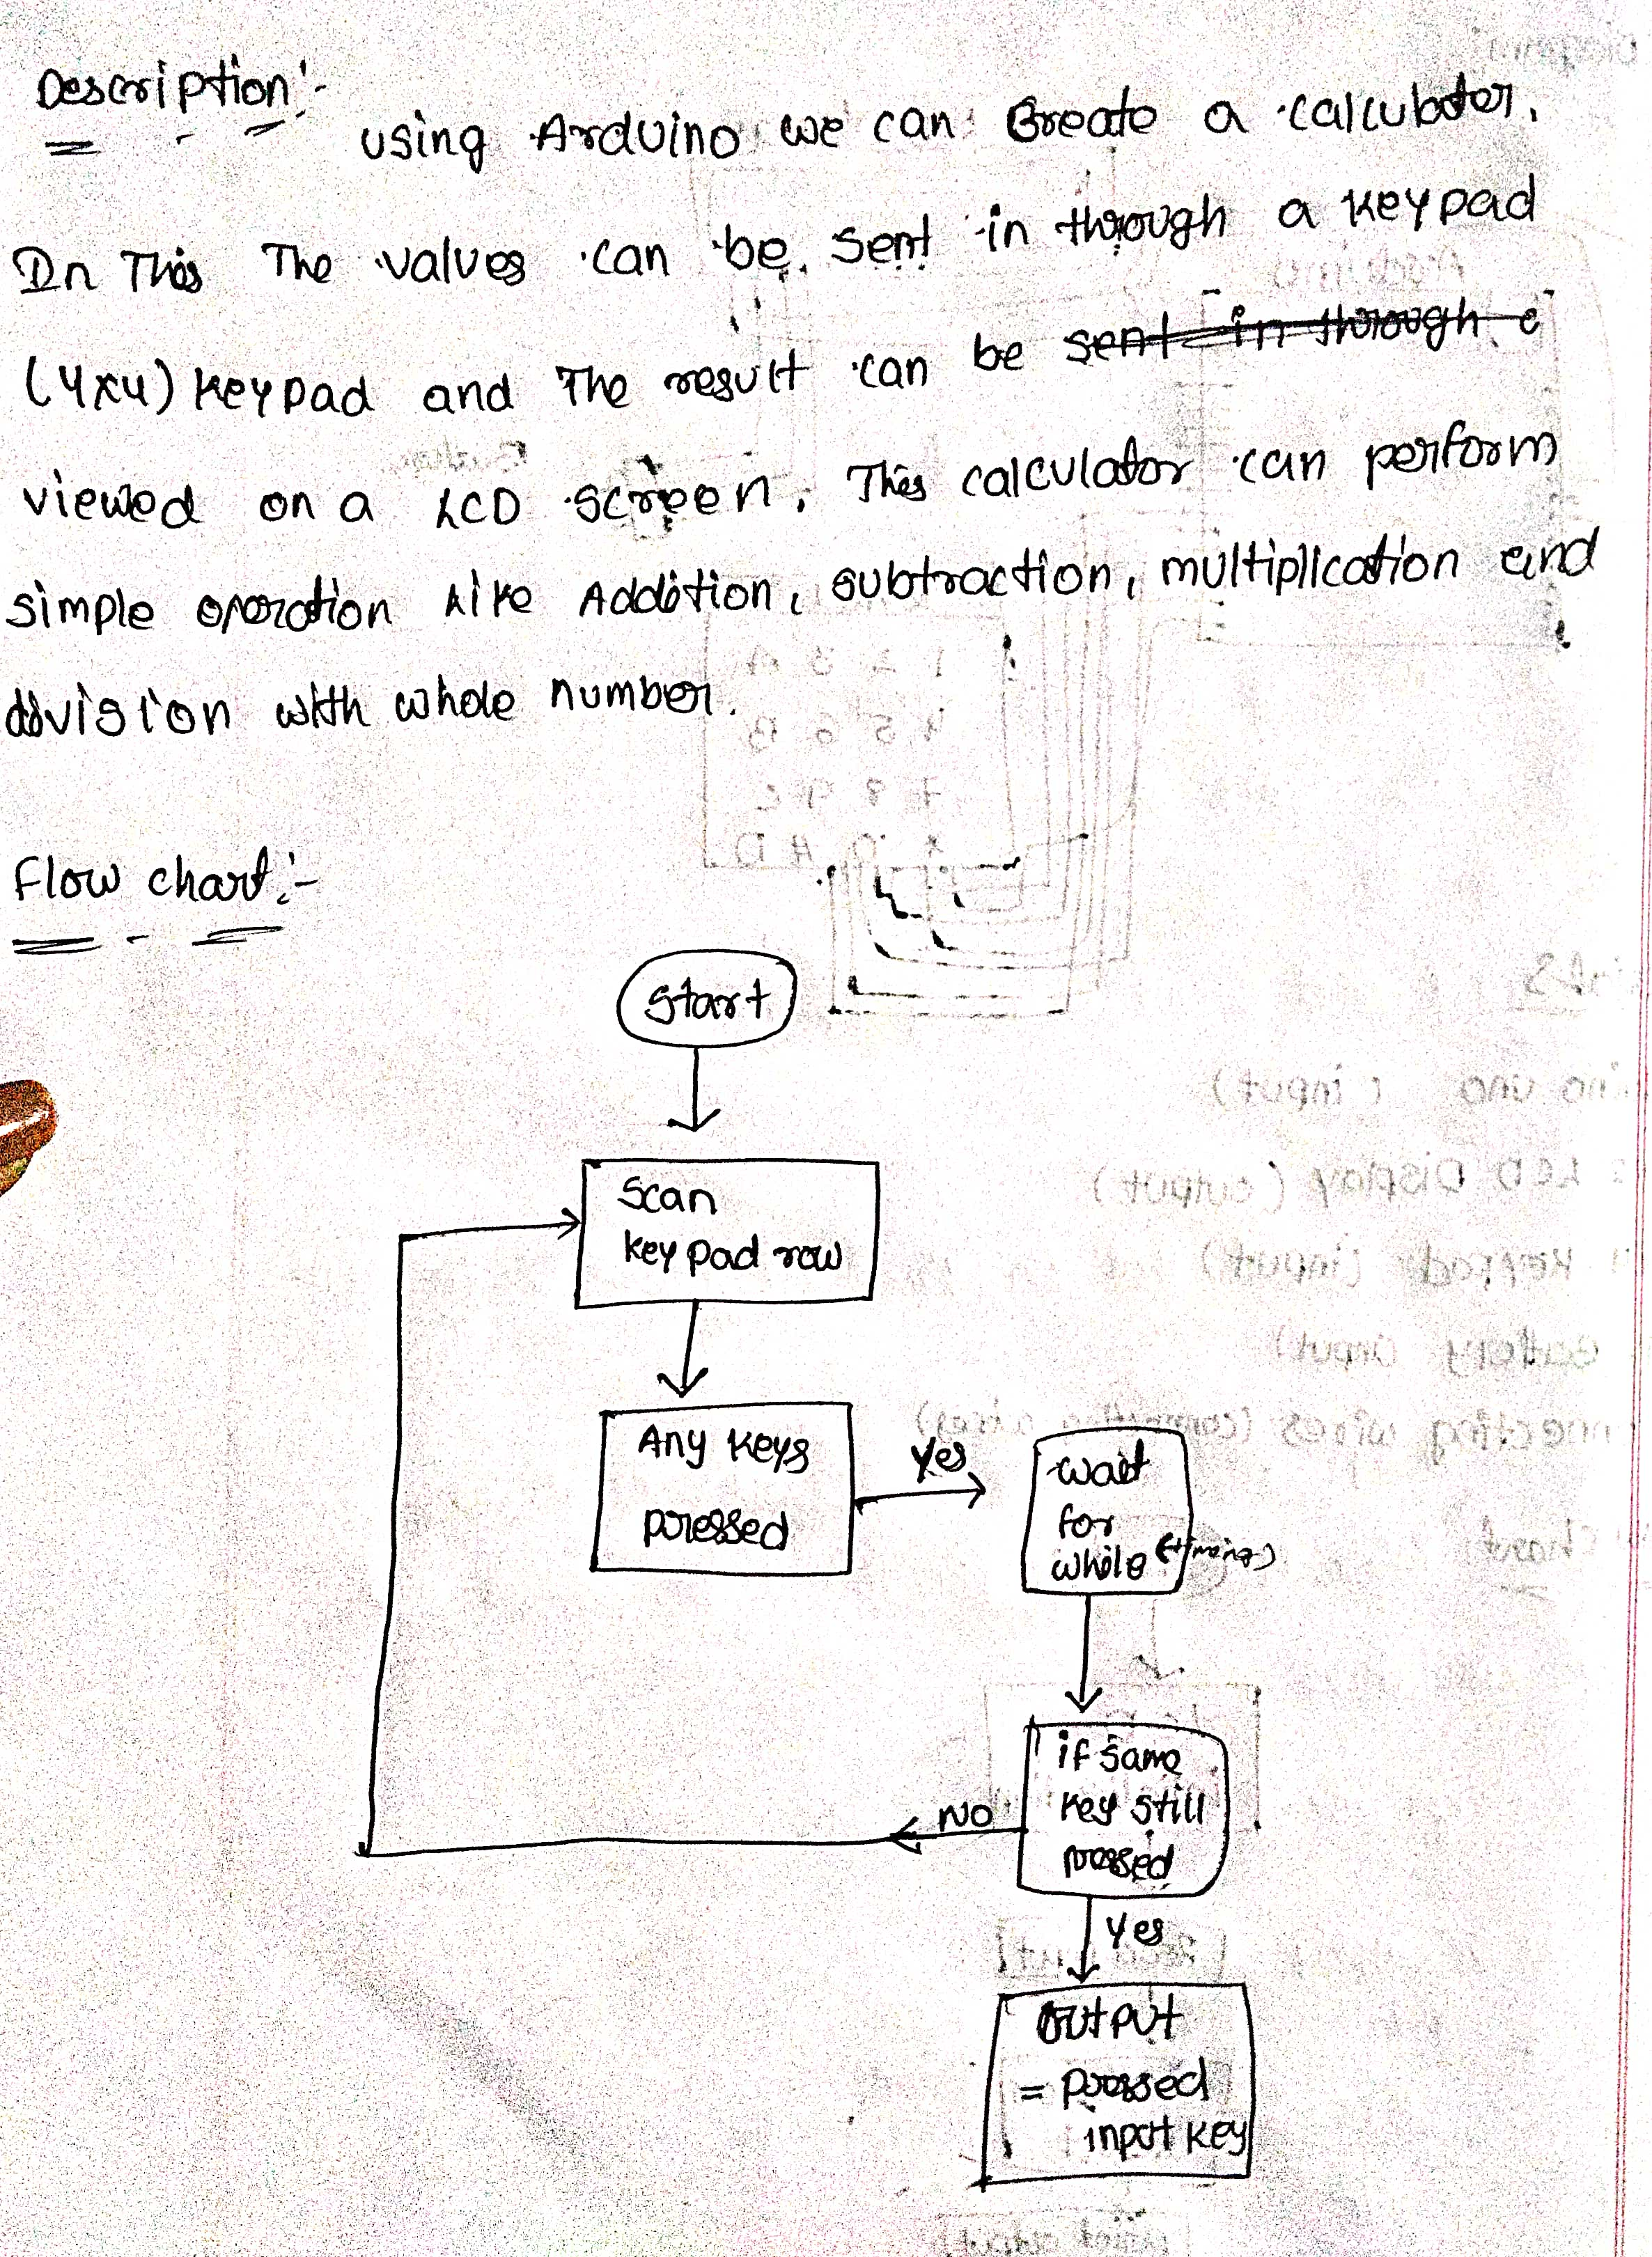 Description:-
using Arduino we can Create a calculator.
In This The values can be sent in through a keypad
(4x4) keypad and The result can be sent in through
viewed on a LCD screen. This calculator can perform
simple operation Like Addition, subtraction, multiplication and
division with whole number.
Flow chart:-
Start
Scan
key pad row
Any keys
pressed
Yes
wait
for
while (timeing)
if same
key still
pressed
NO
Yes
OUTPUT
= pressed
input key